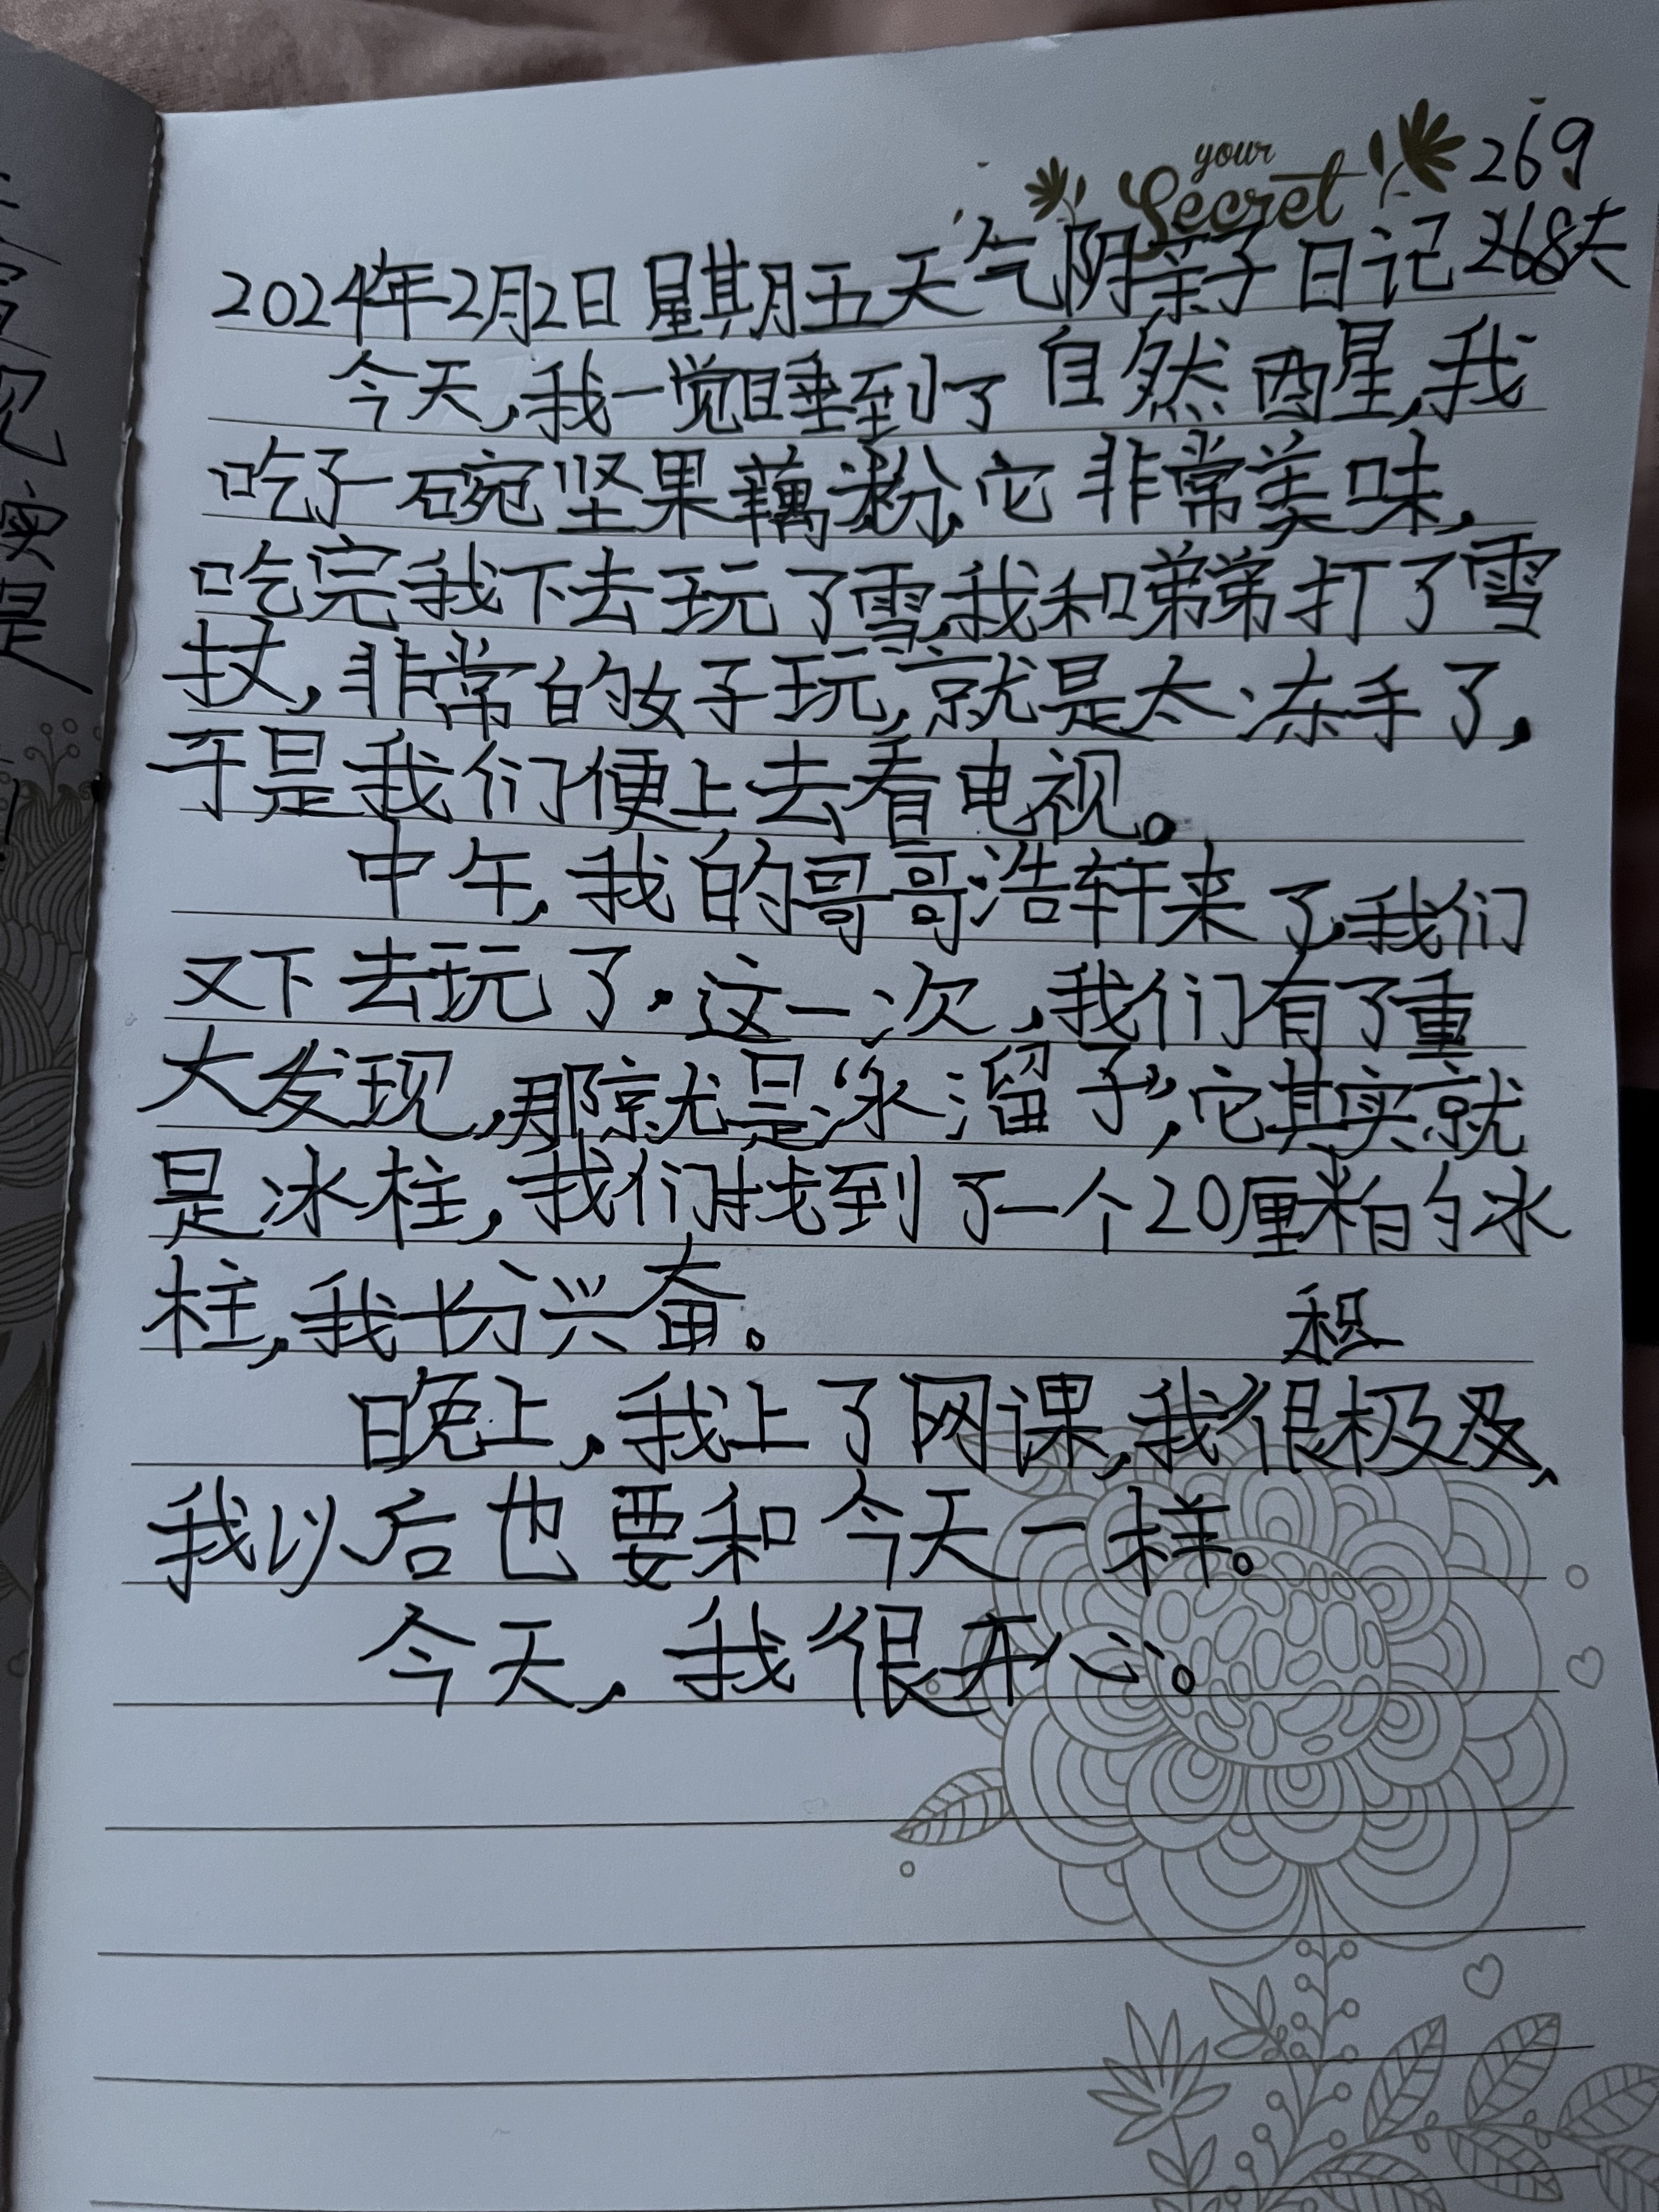 your
Secret
269
2024年2月2日星期五天气阴亲子日记268天
今天,我一觉睡到了自然西星,我
吃了一碗坚果藕粉,它非常美味,
吃完我下去玩了雪,我和弟弟打了雪
扙,非常的好玩,就是太冻手了,
于是我们便上去看电视。
中午,我的哥哥浩轩来了,我们
又下去玩了.这一次,我们有了重
大发现,那就是“氷溜子”,它其实就
是冰柱,我们找到了一个20厘米的冰
柱,我十分兴奋。
积
晚上,我上了网课,我很极及,
我以后也要和今天一样。
今天,我很开心。